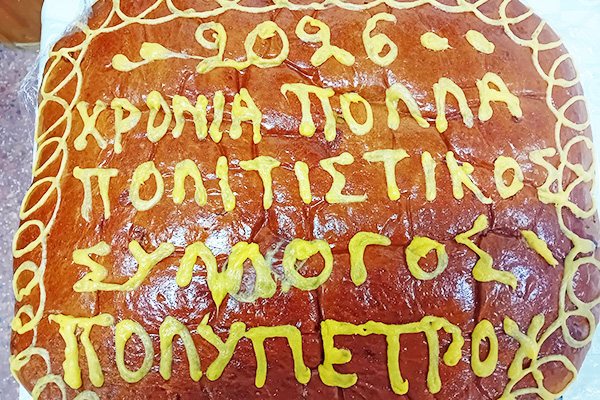 2026
ΧΡΟΝΙΑ ΠΟΛΛΑ
ΠΟΛΙΤΙΣΤΙΚΟΣ
ΣΥΛΛΟΓΟΣ
ΠΟΛΥΠΕΤΡΟΥ